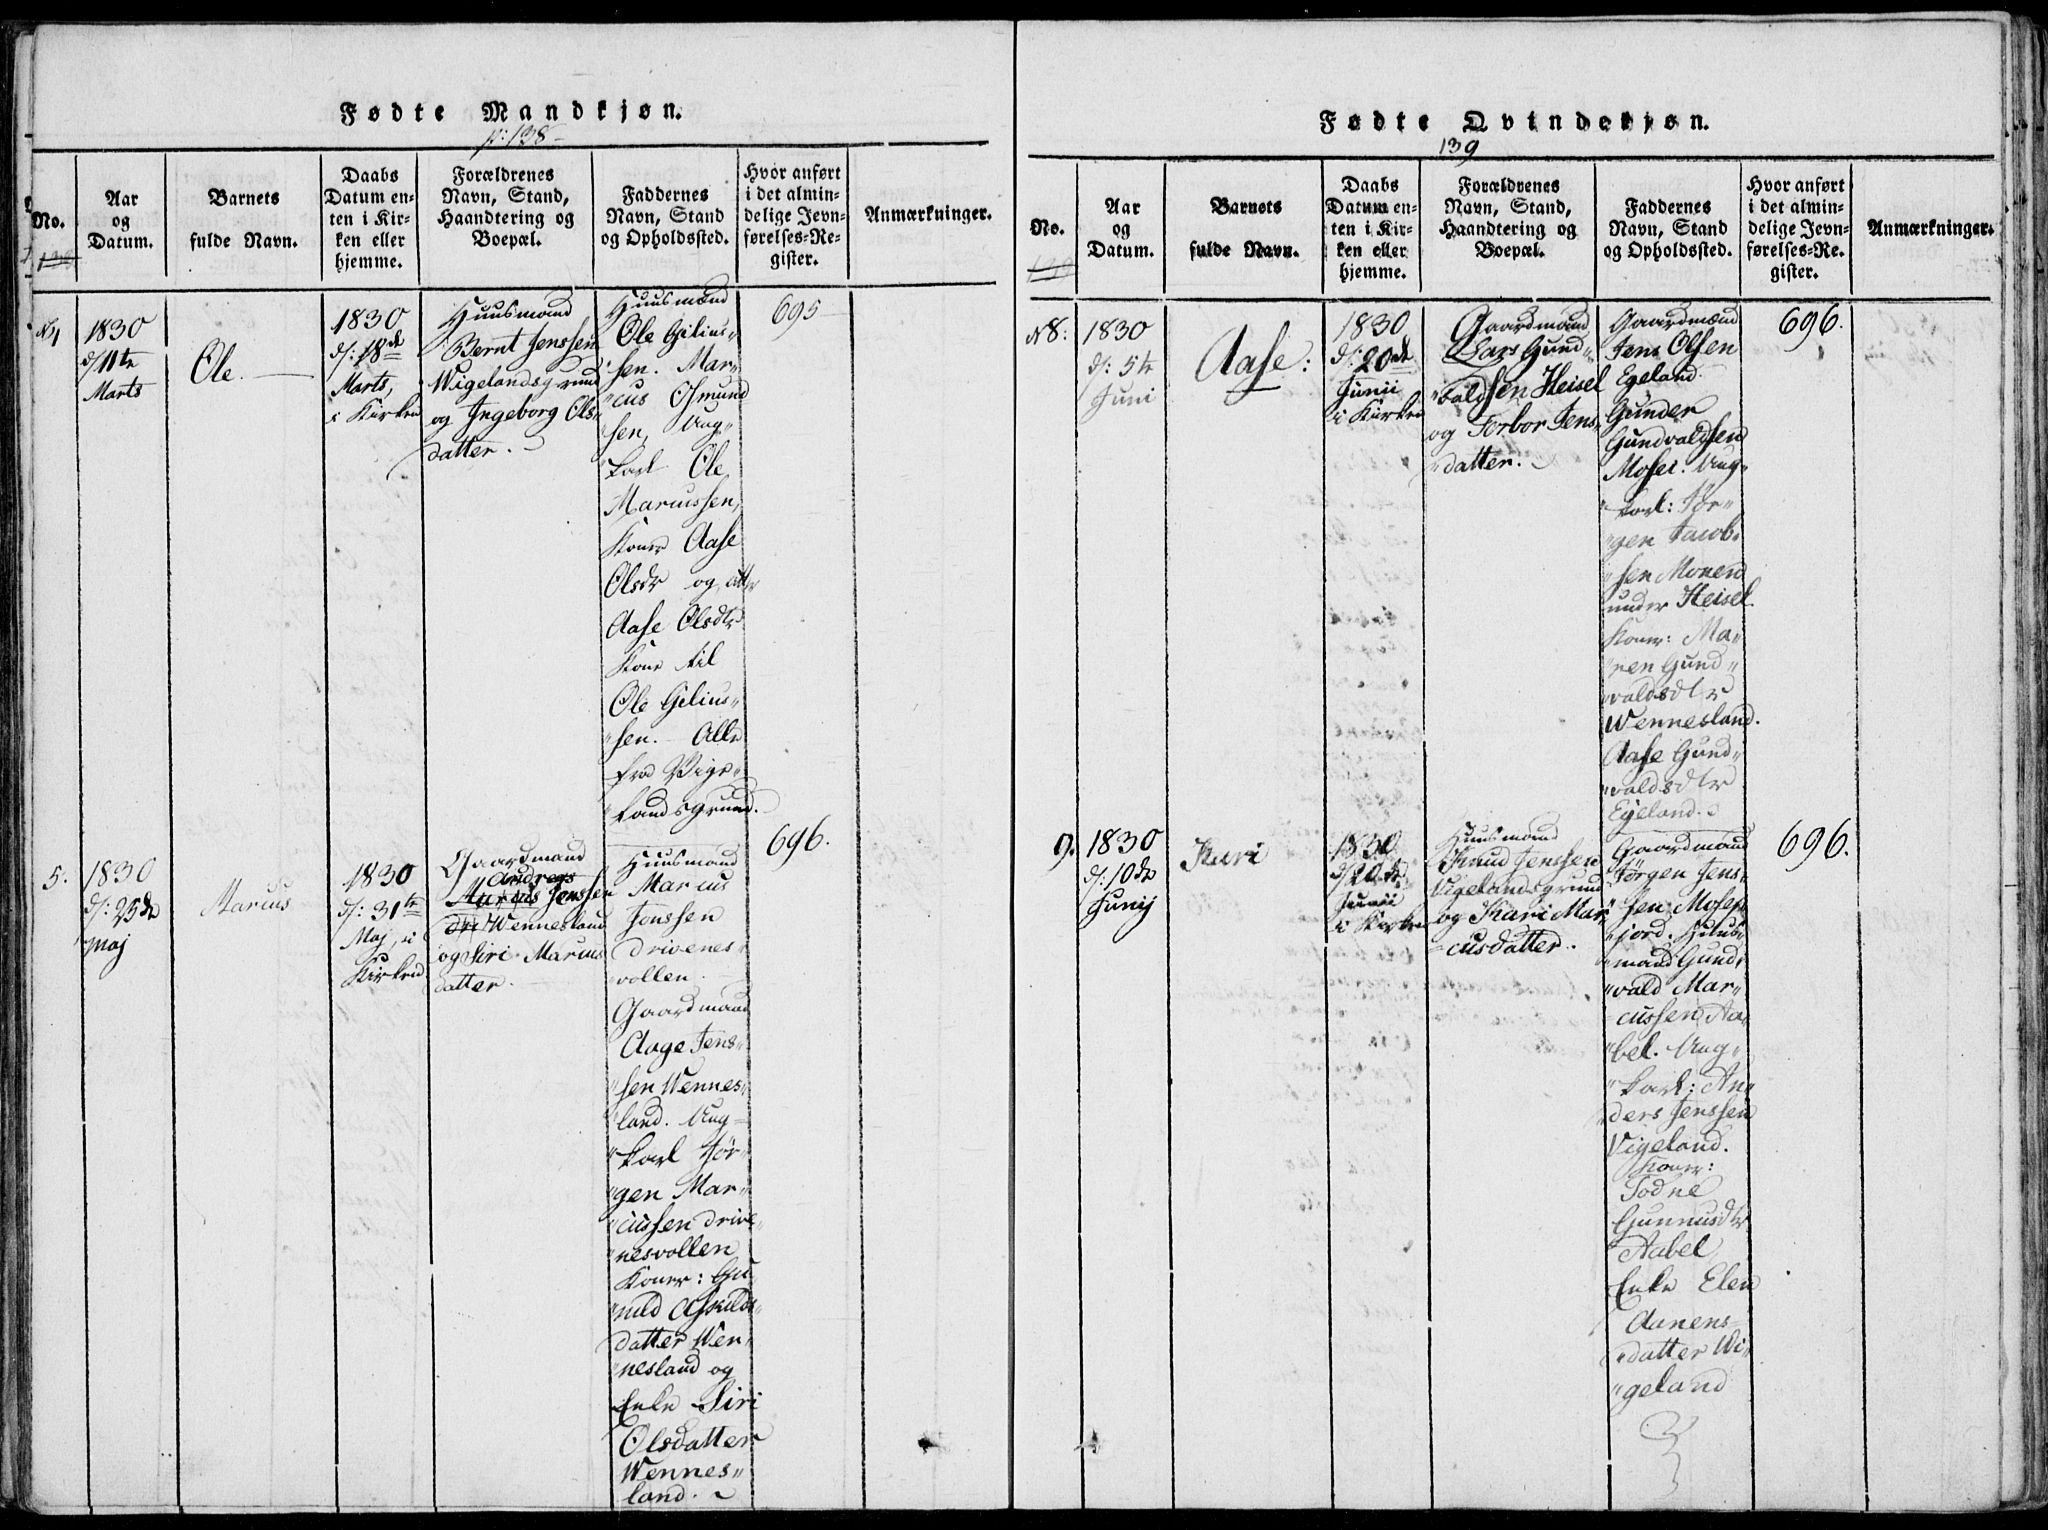 Fødte Mandkjøn.
p: 138 –
No.
Aar
og
Datum.
Barnets
fulde Navn.
Daabs
Datum en-
ten i Kir-
ken eller
hjemme.
Forældrenes
Navn, Stand,
Haandtering og
Boepæl.
Faddernes
Navn, Stand
og Opholdssted.
Hvor anført
i det almin-
delige Jevn-
førelses-Re-
gister.
Anmærkninger.
1830
d: 11te
Marts
Ole.
1830
d: 18de
Marts,
i Kirken
Huusmand
Bernt Jenssen
Wigelandsgrund
og Ingeborg Ols-
datter.
Huusmænd
Ole Gilius„
„sen. Mar„
„cus Osmund
„sen, Ung„
„karl Ole
Marcussen,
Koner Aase
Olsdr og
Aase Olsdtr
Kone til
Ole Gelius„
„sen. – Alle
fra Vige„
„landsgrund.
695
5.
1830
d: 25de
maj
Marcus
1830
d: 31te
Maj, i
Kirken
Gaardmand
Andreas
Marcus Jenssen
Wennesland
og Siri Marcus
datter.
Huusmand
Marcus
Jonssen
Drivenes„
„vollen.
Gaardmand
Aage Jens„
„sen Wennes„
„land. Ung„
„karl Jør„
„gen Mar„
„cussen Drive„
„nesvollen
Koner: Gu„
„nild Askilds„
datter Wen„
„nesland og
Enke Siri
Olsdatter
Wennes„
land.
696.
Fødte Qvindekjøn.
139
No.
Aar
og
Datum.
Barnets
fulde Navn.
Daabs
Datum en-
ten i Kir-
ken eller
hjemme.
Forældrenes
Navn, Stand,
Haandtering og
Boepæl.
Faddernes
Navn, Stand
og Opholdssted.
Hvor anført
i det almin-
delige Jevn-
førelses-Re-
gister.
Anmærkninger.
N8:
1830
d: 5te
Juni
Aase:
1830
d: 20de
Junii
i Kirken
Gaardmand
Lars Gund„
„valdsen Heisel
og Torbor Jens„
„datter.
Gaardmænd
Jens Olsen
Egeland.
Gunder
Gundvaldsen
Mosei. Ung„
„karl: Jør„
„gen Jacob„
„sen Monen
under Heisel.
Koner: Ma„
„ren Gund„
„valdsdtr
Wennesland.
Aase Gund„
„valdsdtr
Egeland.
696.
9.
1830
d: 10de
Junij
Kari
1830
d 20de
Junii
i Kirken
Huusmand
Knud Jenssen
Vigelandsgrund
og Kari Mar
„cusdatter.
Gaardmand
Jørgen Jens„
„sen Mosef
fjord. Huus„
„mand Gund„
„vald Mar„
„cussen Aa„
„bel. Ung„
„karl: An„
ders Jenssen
Vigeland.
Koner:
Todne
Gunnusdtr
Aabel
Enke Elen
Aanens„
„datter Wi„
„geland
696.